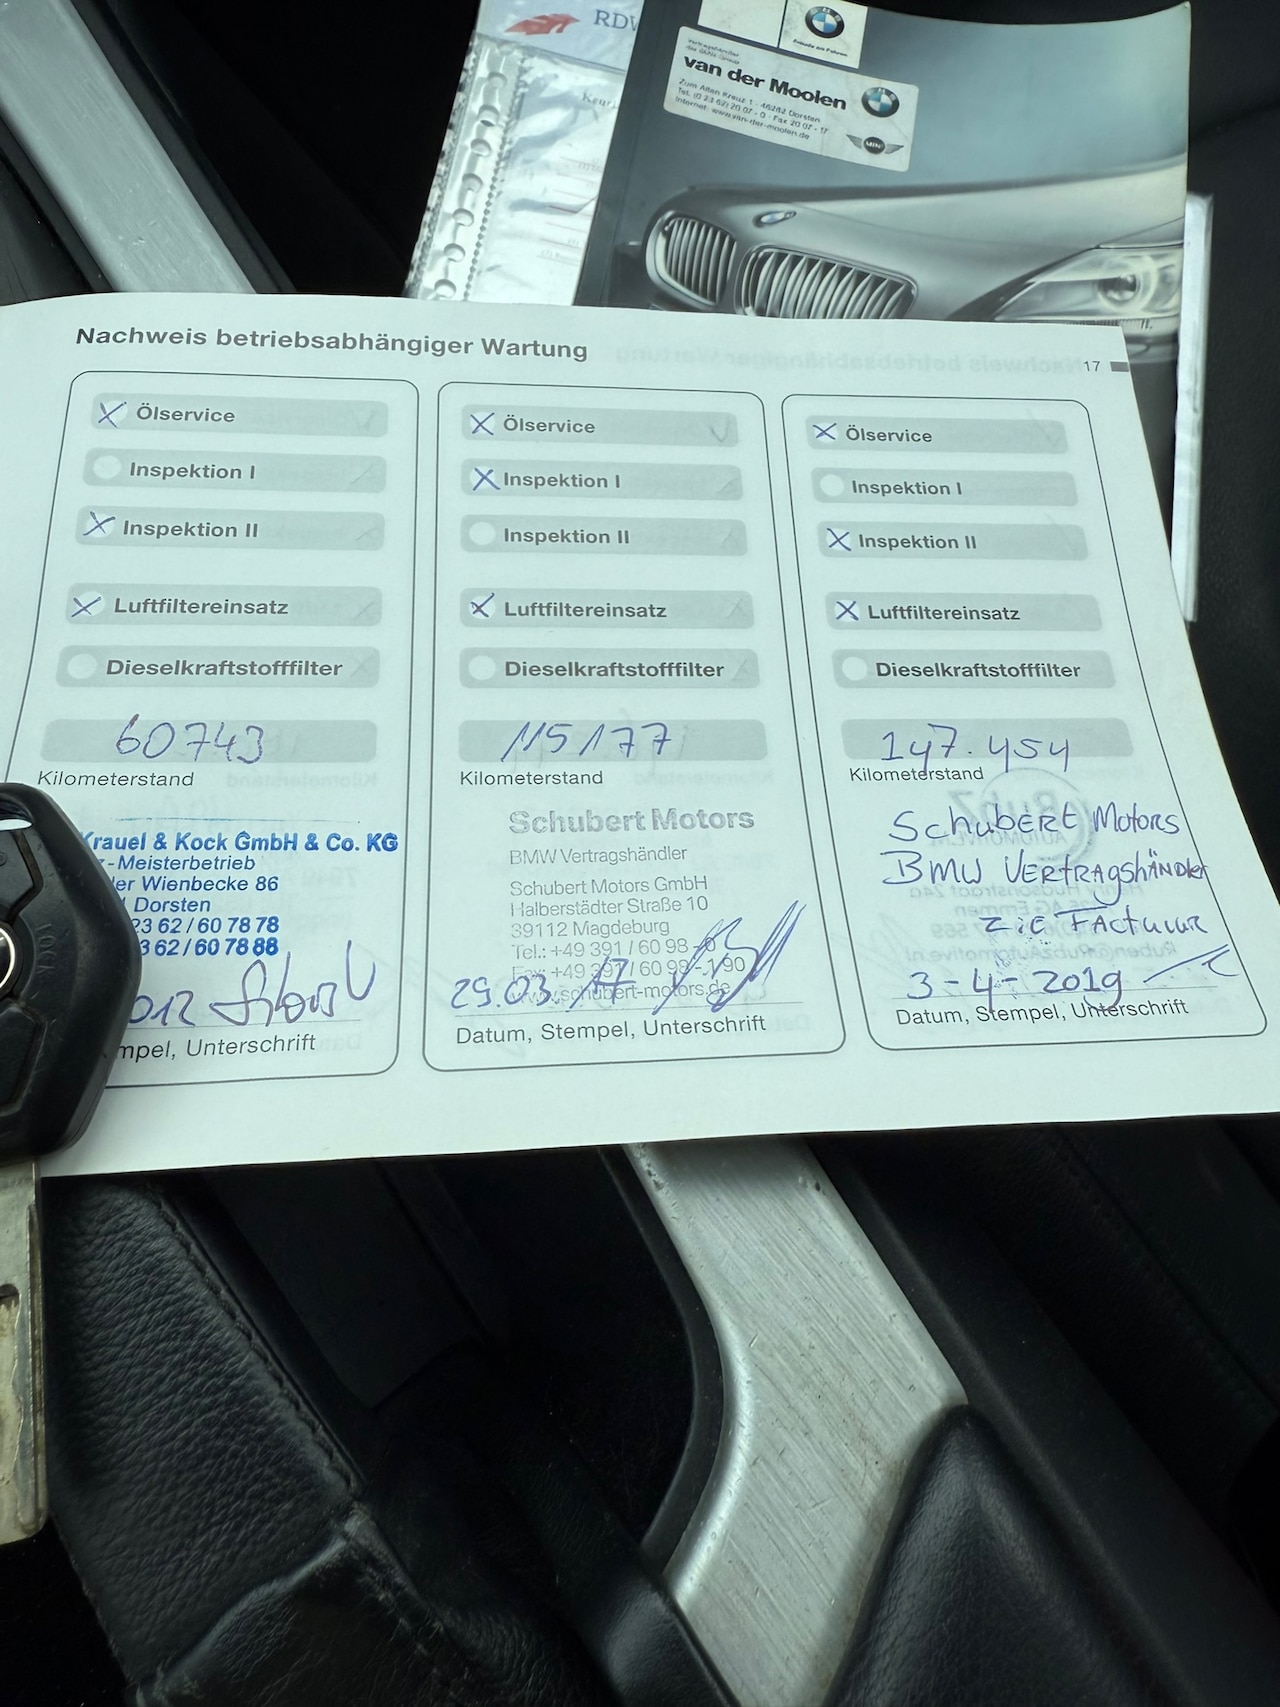 BMW
Freude am Fahren
Vertragshändler
der BMW Group
van der Moolen
Zum Alten Kreuz 1 - 46282 Dorsten
Tel. (0 23 62) 20 07 - 0 · Fax 20 07 - 17
Internet: www.van-der-moolen.de
MINI
Nachweis betriebsabhängiger Wartung
17
X Ölservice
Inspektion I
X Inspektion II
X Luftfiltereinsatz
Dieselkraftstofffilter
60743
Kilometerstand
Krauel & Kock GmbH & Co. KG
-Meisterbetrieb
Wienbecke 86
Dorsten
23 62 / 60 78 78
3 62 / 60 78 88
012
mpel, Unterschrift
X Ölservice
X Inspektion I
Inspektion II
X Luftfiltereinsatz
Dieselkraftstofffilter
115177
Kilometerstand
Schubert Motors
BMW Vertragshändler
Schubert Motors GmbH
Halberstädter Straße 10
39112 Magdeburg
Tel.: +49 391 / 60 98 -0
Fax: +49 391 / 60 98 - 190
www.schubert-motors.de
29.03.17
Datum, Stempel, Unterschrift
X Ölservice
Inspektion I
X Inspektion II
X Luftfiltereinsatz
Dieselkraftstofffilter
147.454
Kilometerstand
Schubert Motors
BMW Vertragshändler
zie Factuur
3-4-2019
Datum, Stempel, Unterschrift
LOCK